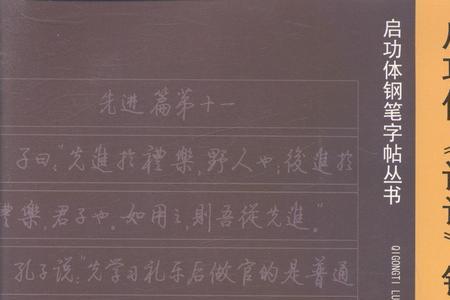 先进篇第十一
子曰：“先進於禮樂，野人也；後進於
禮樂，君子也。如用之，則吾從先進。”
孔子说：“先学习礼乐后做官的是普通
启功体钢笔字帖丛书
QIGONGTI LU
启功体《论语》钢